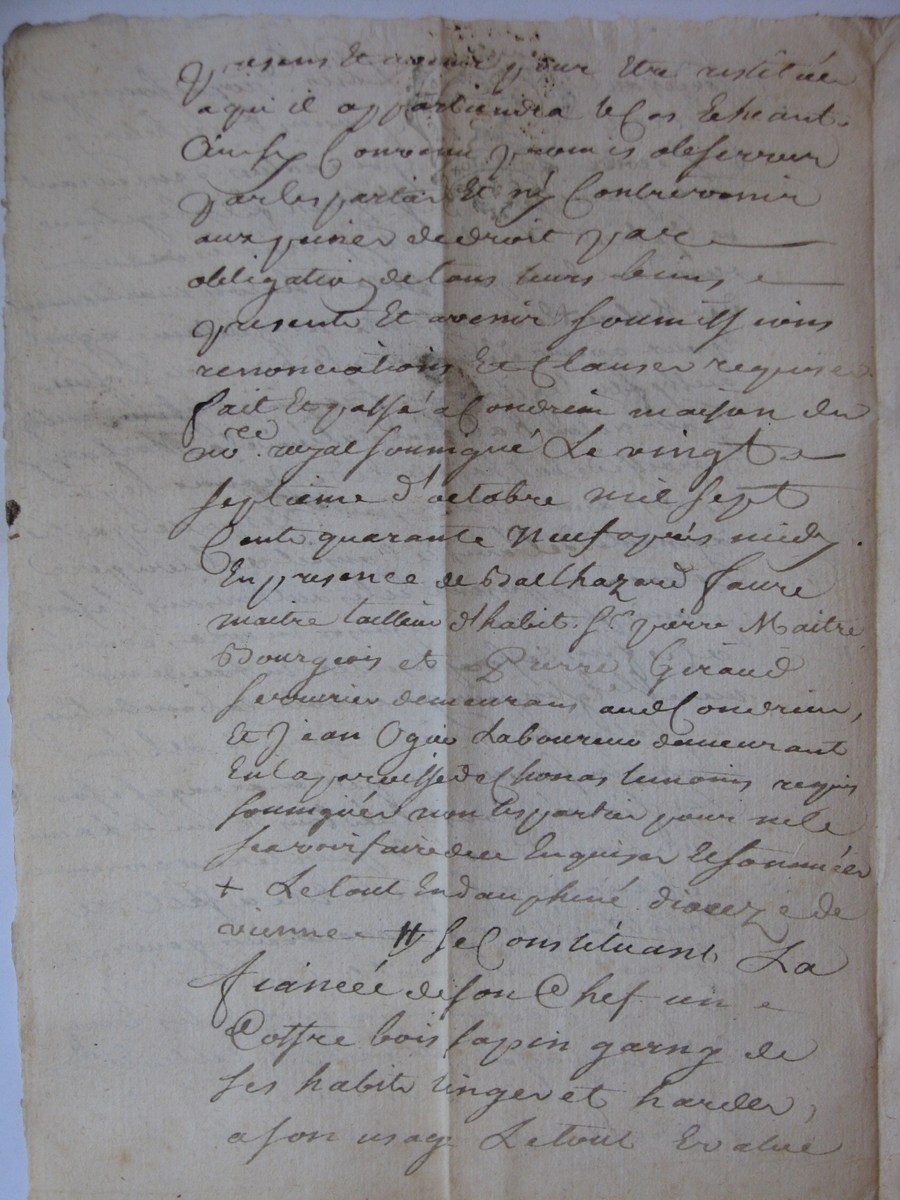 presens et avenir pour etre restituée
a qui il appartiendra le Cas Echeant.
Ainsy Convenu promis observer
par les parties Et n'y Contrevenir
aux peines de droit par
obligation de tous leurs biens
presents Et avenir soumissions
renonciations Et Clauses requises
fait Et passé a Condrieu maison du
no.re royal soussigné Le vingt
septieme d'octobre mil sept
Cents quarante Neuf après midy.
En presence de Balthazard faure
maitre tailleur d'habit. Sr. pierre Maitre
Bourgeois et Pierre Giraud
serrurier demeurans aud Condrieu,
Et Jean Ogier Laboureur demeurant
En la parroisse de Chonas temoins requis
soussignés non les parties pour ne le
scavoir faire de ce Enquises Et sommées
+ Le tout En dauphiné diocèze de
vienne # Se Constituant La
fiancée de son Chef un
Coffre bois sapin garny de
ses habits linges et hardes,
a son usage Le tout Evalué